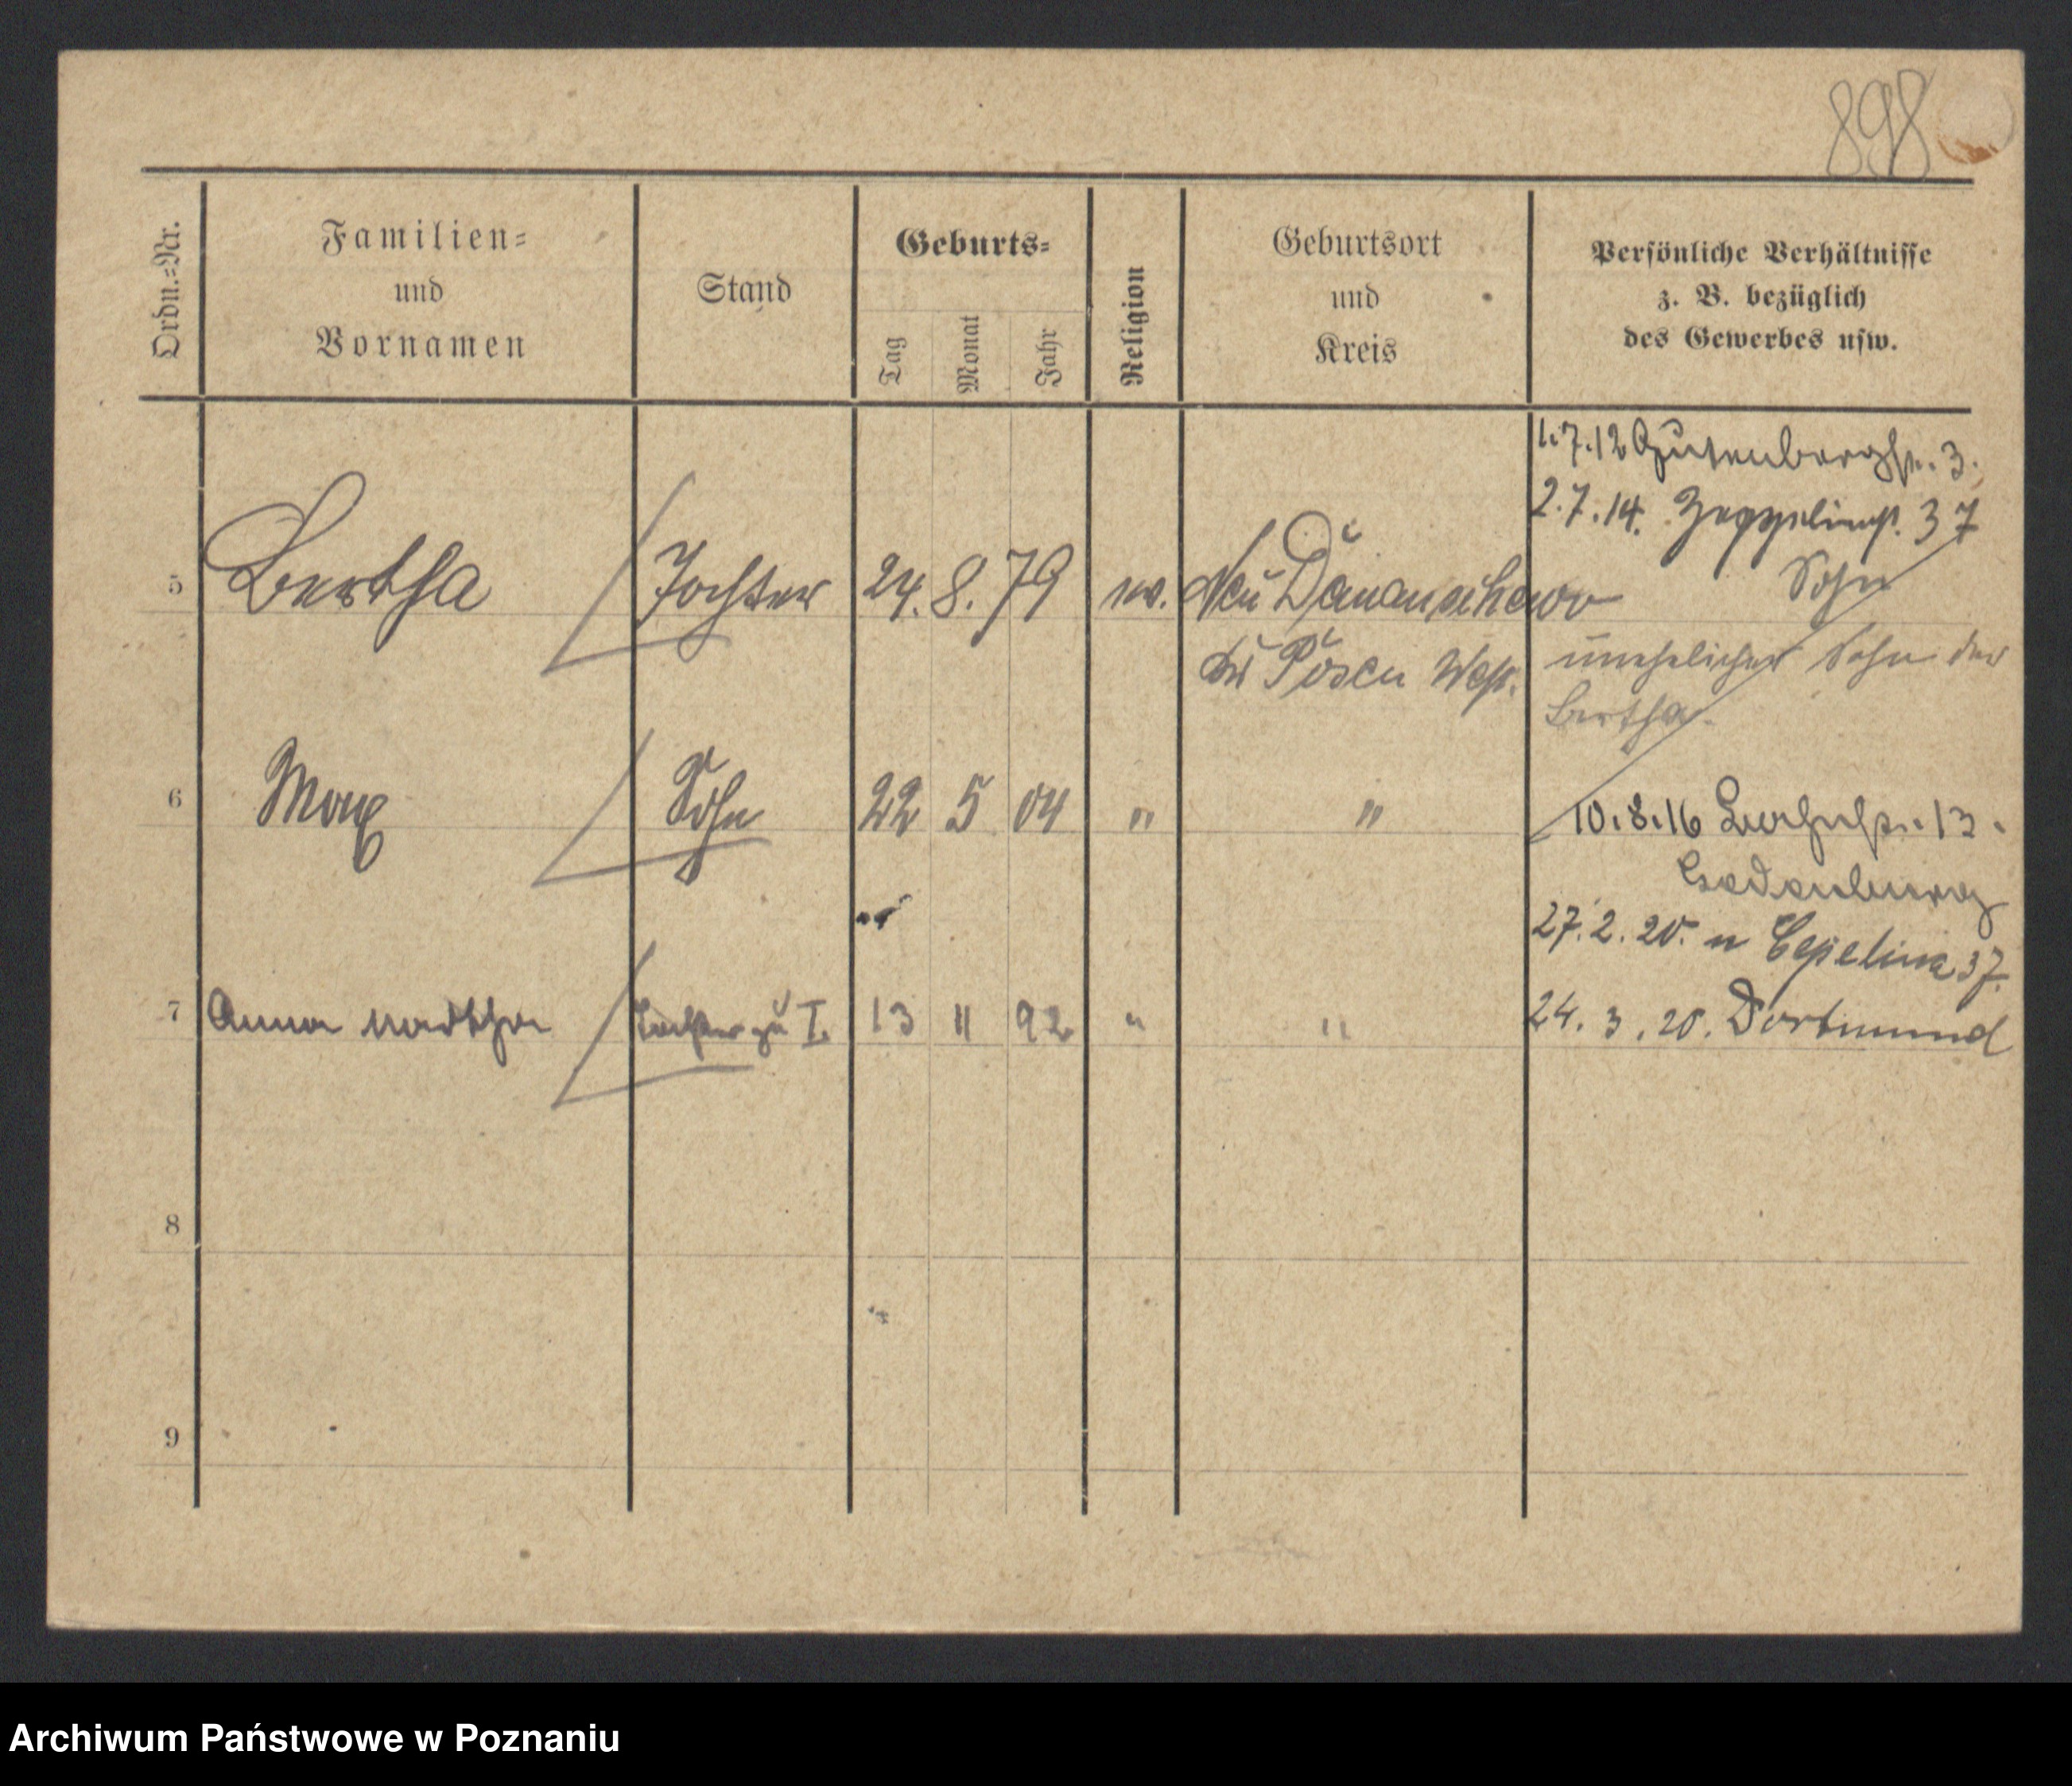 898
Ordn.=Nr.
Familien=
und
Vornamen
Stand
Geburts=
Tag
Monat
Jahr
Religion
Geburtsort
und
Kreis
Persönliche Verhältnisse
z. B. bezüglich
des Gewerbes usw.
1.7.12 Gutenbergstr. 3.
2.7.14. Zeppelinst. 37
5 Bertha Tochter 24. 8. 79 ev. Neu Sohn
Posen West. unehelicher Sohn der
Bertha.
6 Max Sohn 22 5 04 " " 10.8.16 13.
27.2.20. n 37.
7 Anna Martha Tochter zu I. 13 11 92 " " 24. 3. 20. Dortmund
8
9
Archiwum Państwowe w Poznaniu